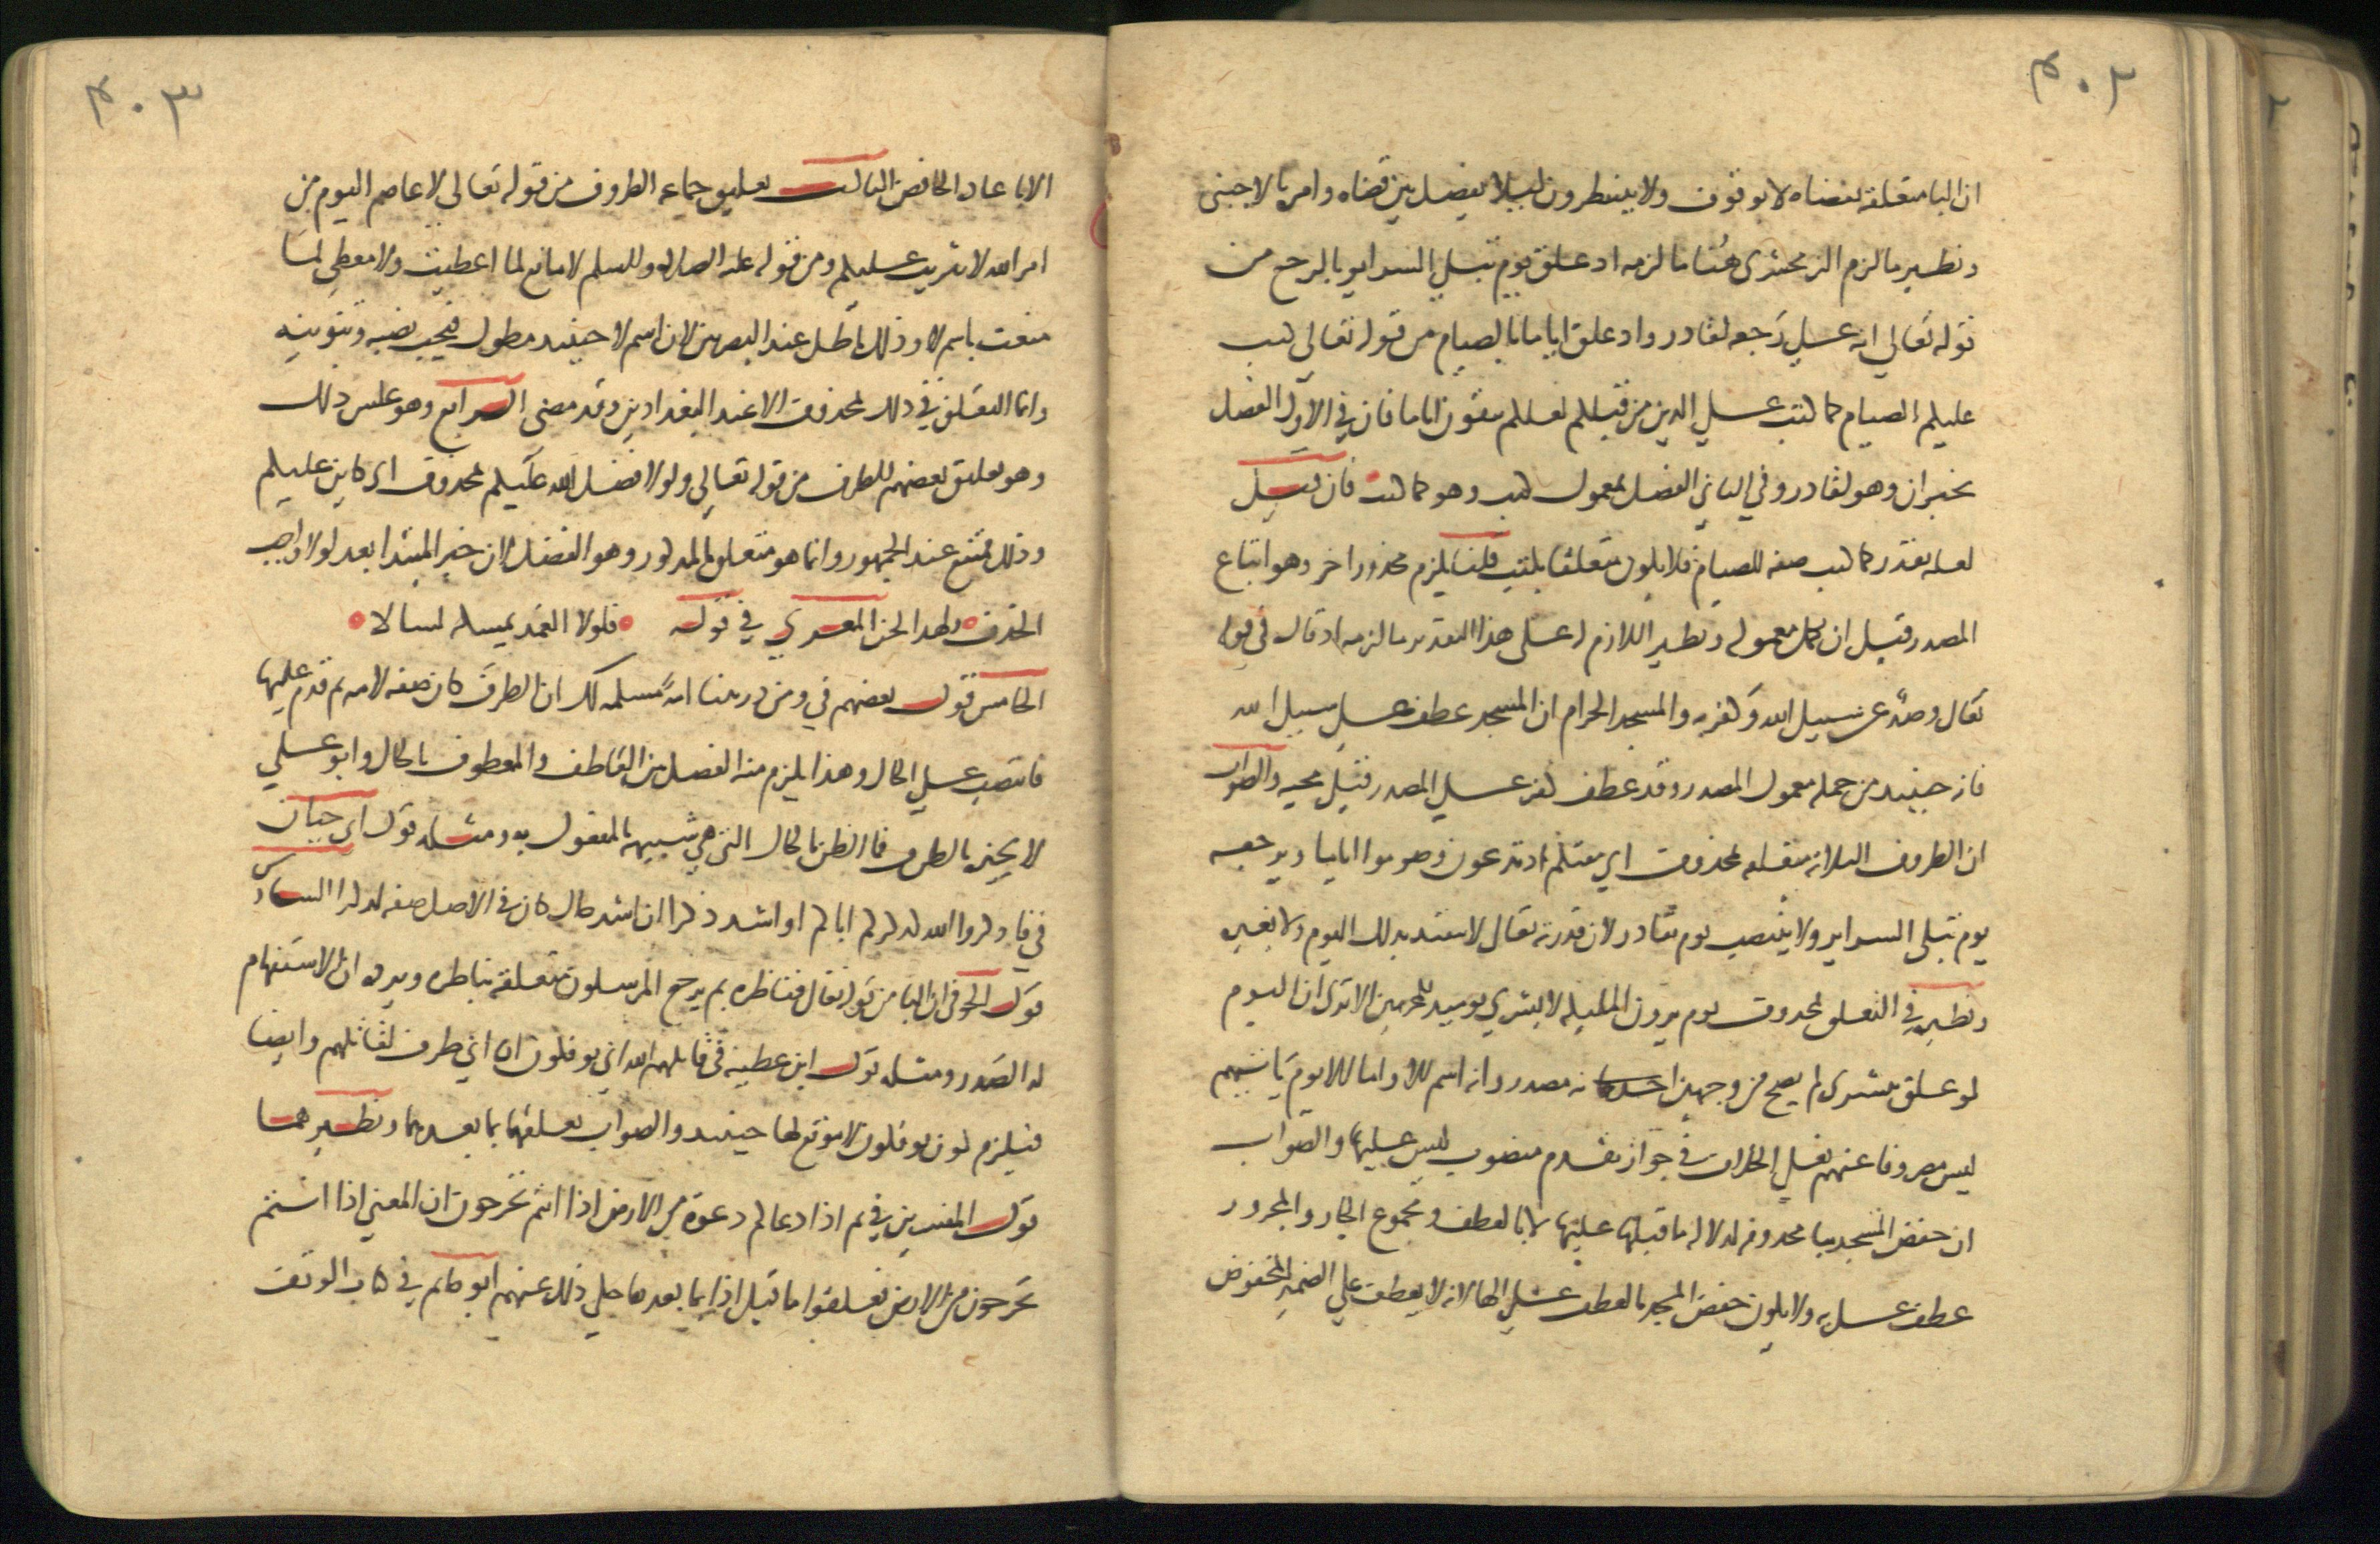 ٤٠٢
ان البا متعلقة بقضاه لا بوقوف ولا بينتظرون ليلا يفصل بين قضاه وامر بالاجنبى
ونظير ما لزم الزمخشرى هنا ما لزمه اذ علق يوم تبلى السراير بالرجع من
قوله تعالى انه على رجعه لقادر واذ علق اياما بالصيام من قوله تعالى كتب
عليكم الصيام كما كتب على الدين من قبلكم لعلكم تتقون اياما فان فى الاول الفصل
بخبر ان وهو لقادر وفى الثانى الفصل بمعمول كتب وهو كما كتب فان قيل
لعله يقدر كما كتب صفه للصيام فلا يكون متعلقا بكتب قلنا يلزم محذور اخر وهو اتباع
المصدر قبل ان يكمل معموله ونظير اللازم له على هذا التقدير ما لزمه اذ قال فى قوله
تعال وصد عن سبيل الله وكفر به والمسجد الحرام ان المسجد عطف على سبيل الله
فانه حينيد من جمله معمول المصدر وقد عطف كفر على المصدر قبل مجيه والصواب
ان الظروف الثلاثه متعلقه بمحذوف اى مقتكم اذ تدعون وصوموا اياما ويرجعه
يوم تبلى السراير ولا ينتصب يوم بقادر لان قدرته تعال لا تتقيد بدلك اليوم ولا بغيره
ونظيره فى التعلق بمحذوف يوم يرون المليكه لا بشرى يوميد للمجرمين الا ترى ان اليوم
لو علق ببشرى لم يصح من وجهين احدهما انه مصدر وانه اسم للا واما الا يوم ياتيهم
ليس مصروفا عنهم فعلى الخلاف فى جواز تقدم منصوب ليس عليها والصواب
ان خفض المسجد ببا محدوفه لدلاله ما قبلها عليها لا بالعطف ومجموع الجار والمجرور
عطف على به ولا يكون خفض المسجد بالعطف على الها لانه لا يعطف على الضمير المخفوض
٤٠٣
الا باعاده الخافض الثالث تعليق جماعه الظروف من قوله تعالى لا عاصم اليوم من
امر الله لا تثريب عليكم ومن قوله عليه الصلاه والسلم لا مانع لما اعطيت ولا معطى لما
منعت باسم لا وذلك باطل عند البصريين لان اسم لا حينيد مطول فيجب نصبه وتنوينه
وانما التعلق فى ذلك بمحذوف الا عند البغداديين وقد مضى الرابع وهو عكس ذلك
وهو تعليق بعضهم للظرف من قوله تعالى ولولا فضل الله عليكم بمحذوف اى كاين عليكم
وذلك ممتنع عند الجمهور وانما هو متعلق بالمذكور وهو الفضل لان خبر المبتدا بعد لولا واجب
الحذف ولهذا لحن المعرى فى قوله فلولا الغمد يمسكه لسالا
الخامس قول بعضهم فى ومن ذريتنا امة مسلمه لك ان الظرف كان صفه لامه ثم قدم عليها
فانتصب على الحال وهذا يلزم منه الفصل بين العاطف والمعطوف بالحال وابو على
لا يجيزه بالظرف فما الظن بالحال التى هى شبيهه بالمفعول به ومثله قول ابى حيان
فى فاذكروا الله كذكركم اباكم او اشد ذكرا ان اشد حال كان فى الاصل صفه لذكرا السادس
قول الحوفى ان البا من قوله تعال فناظره بم يرجع المرسلون متعلقه بناظره ويرده ان الاستفهام
له الصدر ومثله قول ابن عطيه فى قاتلهم الله انى يوفكون ان انى ظرف لقاتلهم وايضا
فيلزم كون يوفكون لا موقع لها حينيد والصواب تعلقهما بما بعدهما ونظيرهما
قول المفسرين فى ثم اذا دعاكم دعوة من الارض اذا انتم تخرجون ان المعنى اذا انتم
تخرجون من الارض فعلقوا ما قبل اذا بما بعدها حكى ذلك عنهم ابو حاتم فى كتاب الوقف